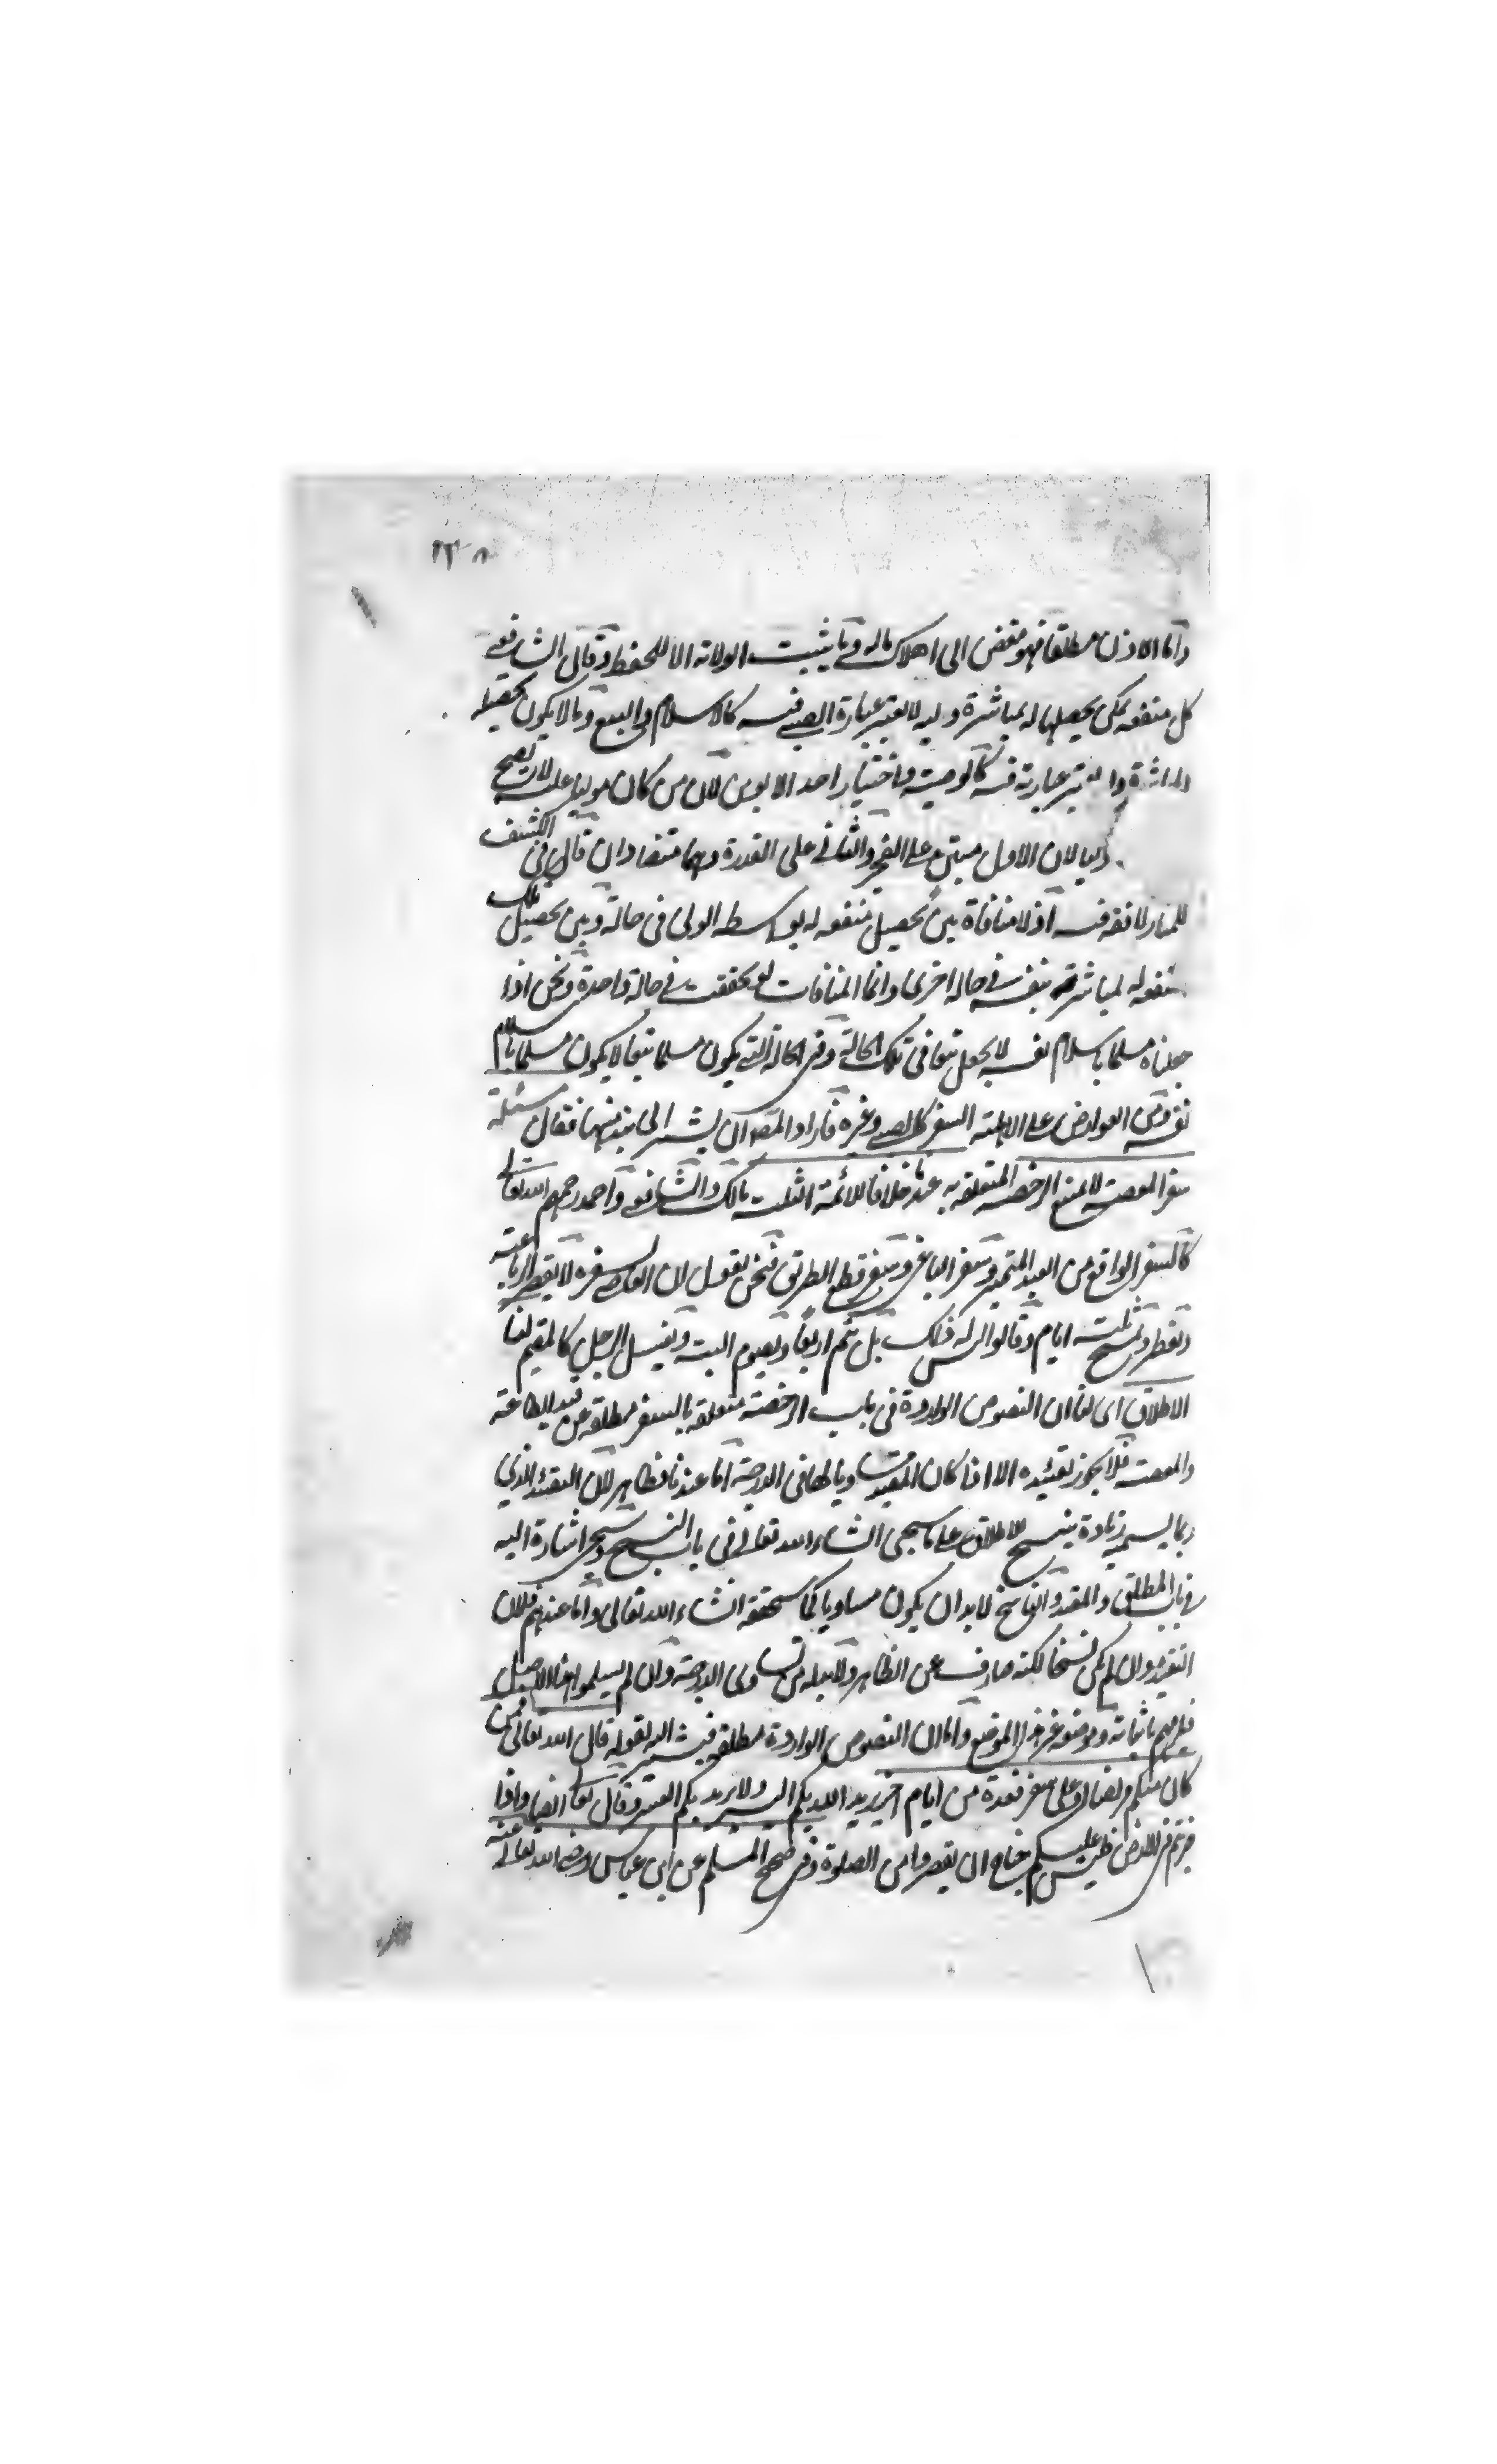 ١٣٨
واما الاذن مطلقا فهو مفض الى اهلاك ماله وما يثبت الولاية الا للحفظ وقال الشافعي
كل منفعة يمكن تحصيلها له بمباشرة وليه لا يعتبر عبارة الصبي فيه كالاسلام والبيع وما لا يمكن تحصيله
بالمباشرة يعتبر عبارته فيه كالوصية واختيار احد الابوين لان من كان موليا عليه لا يصح
وليا لان الاول مبتن على العجز والثاني على القدرة وهما متضادان قال في الكشف
للمنار لا فقه فيه اذ لا منافاة بين تحصيل منفعة له بواسطة الولي في حالة وبين تحصيل تلك
منفعة له بمباشرته بنفسه في حالة اخرى وانما المنافات لو تحققت في حالة واحدة ونحن اذا
جعلناه مسلما باسلام نفسه لا نجعل تبعا في تلك الحالة وفي الحالة التي يكون مسلما تبعا لا يكون مسلما باسلام
نفسه ومن العوارض على الاهلية السفر كالصبي وغيره فاراد المصـ ان يشير الى نبذ منها فقال مسئلة
سفر المعصية لا يمنع الرخصة المتعلقة به عندنا خلافا للائمة الثلث مالك والشافعي واحمد رحمهم الله تعالى
كالسفر الواقع من العبد المتمرد وسفر الباغي وسفر قطع الطريق فنحن نقول ان العاصي بسفره لا يقصر الرباعية
ويفطر ويمسح ثلثة ايام وقالوا ليس له ذلك بل يتم اربعا ويصوم البتة ويغسل الرجل كالمقيم لنا
الاطلاق اي لنا ان النصوص الواردة في باب الرخصة متعلقة بالسفر مطلقة عن قيد الطاعة
والمعصية فلا يجوز تقييده الا اذا كان المقيد مساويا لها في الدرجة اما عندنا فظاهر لان التقييد الذي
ربما يسمى زيادة ينسخ الاطلاق على ما سيجئ انشاء الله تعالى في باب النسخ وسيجئ اشارة اليه
في باب المطلق والمقيد والناسخ لابد ان يكون مساويا كما ستحققه انشاء الله تعالى واما عندهم فلان
التقييد وان لم يكن نسخا لكنه صارف عن الظاهر ولابد له من تساوى الدرجة وان لم يسلموا هذا الاصل
فلزمهم باثباته وموضعه غير هذا الموضع واما ان النصوص الواردة مطلقة فيشير اليه بقوله قال الله تعالى فمن
كان منكم مريضا او على سفر فعدة من ايام اخر يريد الله بكم اليسر ولا يريد بكم العسر وقال تعالى ايضا واذا
ضربتم في الارض فليس عليكم جناح ان تقصروا من الصلوة وفي صحيح المسلم عن ابن عباس رضي الله تعالى عنه